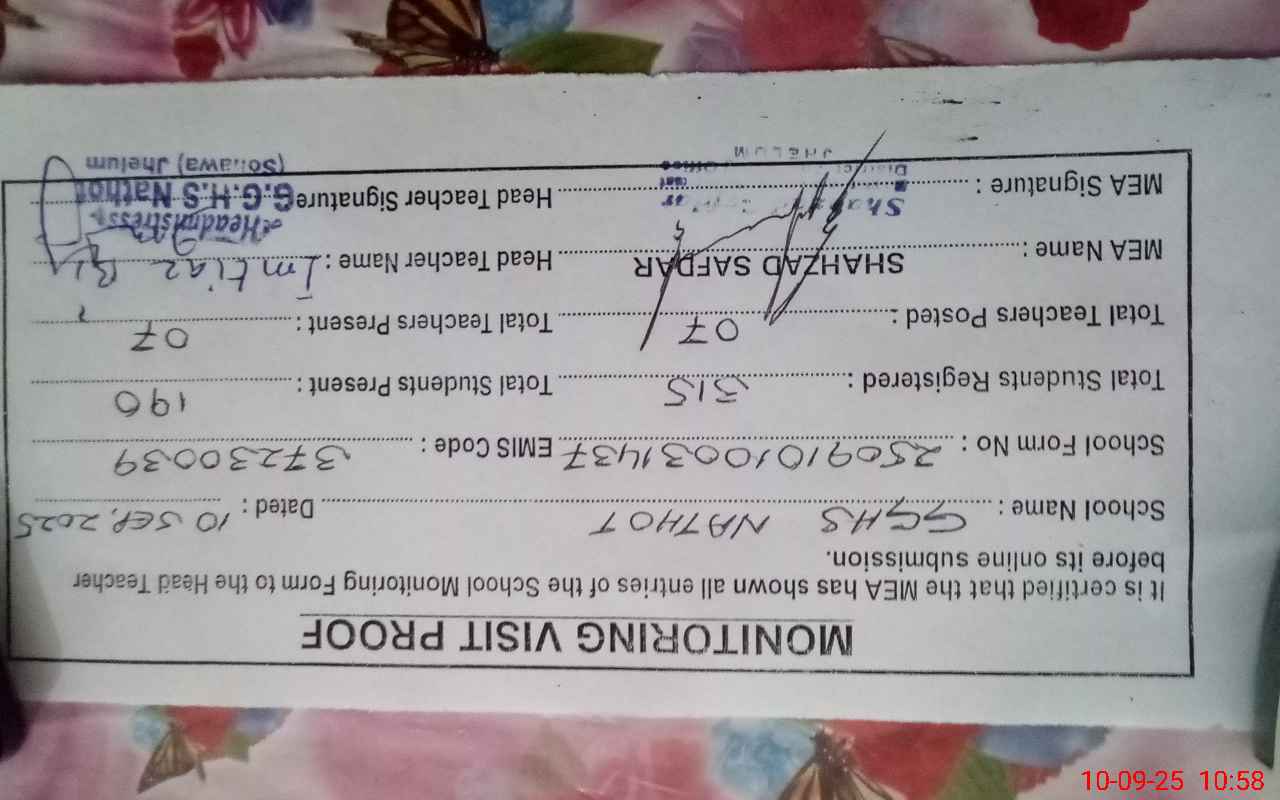 MONITORING VISIT PROOF
It is certified that the MEA has shown all entries of the School Monitoring Form to the Head Teacher
before its online submission.
School Name : GGHS NATHOT Dated : 10 SEP, 2025
School Form No : 2509101003 1437 EMIS Code : 37230039
Total Students Registered : 315 Total Students Present : 190
Total Teachers Posted : 07 Total Teachers Present : 07
MEA Name : SHAHZAD SAFDAR Head Teacher Name : Imtiaz Bi
MEA Signature : Head Teacher Signature
Headmistress
G.G.H.S Nathot
(Sohawa) Jhelum
JHELUM
10-09-25 10:58